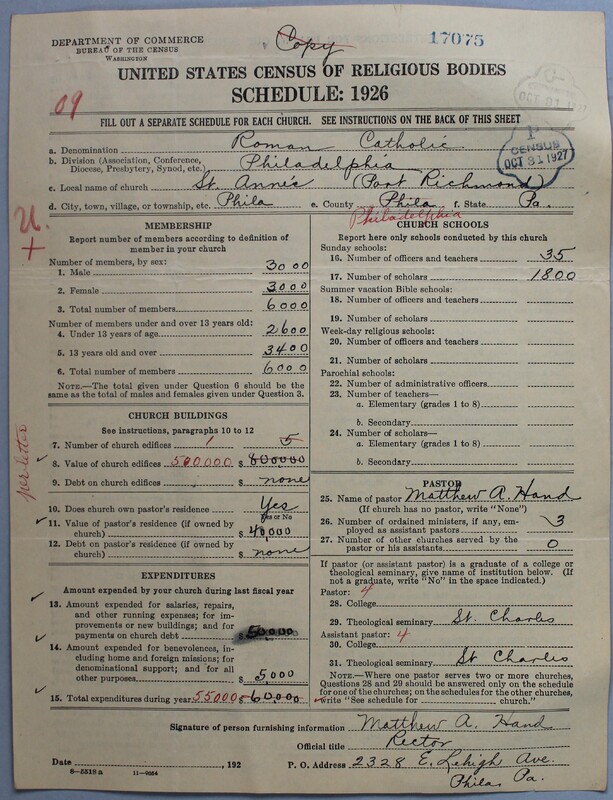 DEPARTMENT OF COMMERCE
BUREAU OF THE CENSUS
WASHINGTON
Copy
17075
UNITED STATES CENSUS OF RELIGIOUS BODIES
SCHEDULE: 1926
09
OCT 31
CENSUS
OCT 31 1927
FILL OUT A SEPARATE SCHEDULE FOR EACH CHURCH. SEE INSTRUCTIONS ON THE BACK OF THIS SHEET
a. Denomination Roman Catholic
b. Division (Association, Conference, Diocese, Presbytery, Synod, etc.) Philadelphia
c. Local name of church St. Anne's (Port Richmond)
d. City, town, village, or township, etc. Phila e. County Phila f. State Pa.
Philadelphia
U.
+
MEMBERSHIP
Report number of members according to definition of
member in your church
Number of members, by sex:
1. Male 3000
2. Female 3000
3. Total number of members 6000
Number of members under and over 13 years old:
4. Under 13 years of age 2600
5. 13 years old and over 3400
6. Total number of members 6000
NOTE.—The total given under Question 6 should be
the same as the total of males and females given under Question 3.
CHURCH BUILDINGS
See instructions, paragraphs 10 to 12
7. Number of church edifices 1 5
8. Value of church edifices 500000 $ 800000
9. Debt on church edifices $ none
per letter
10. Does church own pastor's residence Yes
Yes or No
11. Value of pastor's residence (if owned by
church) $ 40,000
12. Debt on pastor's residence (if owned by
church) $ none
EXPENDITURES
Amount expended by your church during last fiscal year
13. Amount expended for salaries, repairs,
and other running expenses; for im-
provements or new buildings; and for
payments on church debt $ 50,000
14. Amount expended for benevolences,
including home and foreign missions; for
denominational support; and for all
other purposes $ 5,000
15. Total expenditures during year 55000 $ 60,000
CHURCH SCHOOLS
Report here only schools conducted by this church
Sunday schools:
16. Number of officers and teachers 35
17. Number of scholars 1800
Summer vacation Bible schools:
18. Number of officers and teachers
19. Number of scholars
Week-day religious schools:
20. Number of officers and teachers
21. Number of scholars
Parochial schools:
22. Number of administrative officers
23. Number of teachers—
a. Elementary (grades 1 to 8)
b. Secondary
24. Number of scholars—
a. Elementary (grades 1 to 8)
b. Secondary
PASTOR
25. Name of pastor Matthew A. Hand
(If church has no pastor, write "None")
26. Number of ordained ministers, if any, em-
ployed as assistant pastors 3
27. Number of other churches served by the
pastor or his assistants 0
If pastor (or assistant pastor) is a graduate of a college or
theological seminary, give name of institution below. (If
not a graduate, write "No" in the space indicated.)
Pastor: 4
28. College
29. Theological seminary St. Charles
Assistant pastor: 4
30. College
31. Theological seminary St Charles
NOTE.—Where one pastor serves two or more churches,
Questions 28 and 29 should be answered only on the schedule
for one of the churches; on the schedules for the other churches,
write "See schedule for church."
Signature of person furnishing information Matthew A. Hand
Official title Rector
Date , 192 P. O. Address 2328 E. Lehigh Ave.
Phila. Pa.
8-5518a 11-9054